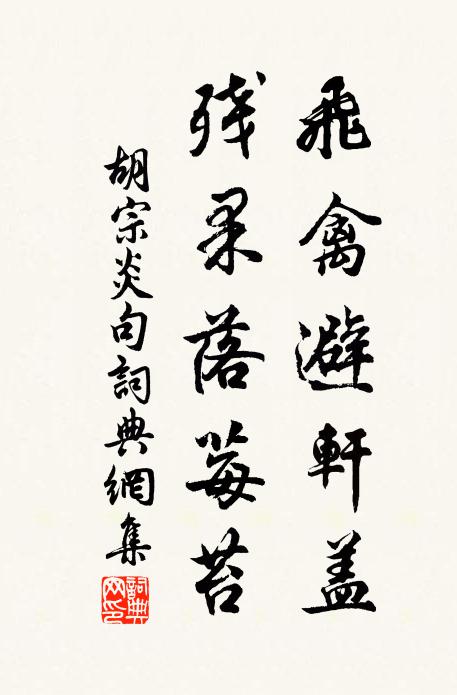 飛禽避軒盖
残果落莓苔
胡宗炎句詞典網集
詞典网印